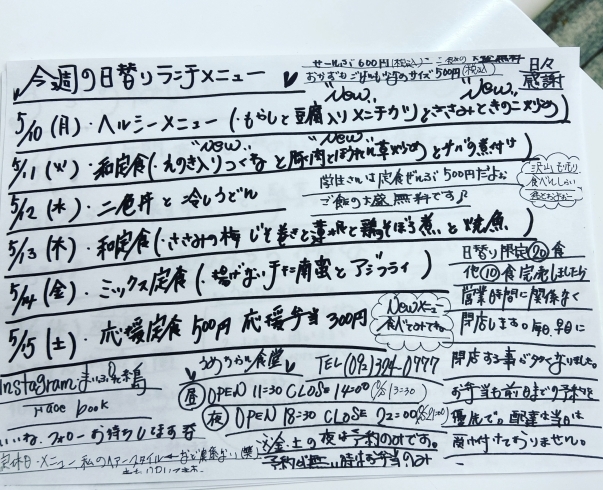 今週の日替りランチメニュー
600円(税込)
サイズ500円(税込)
日々
感謝
New
New
5/10(月)・ヘルシーメニュー(・もやしと豆腐入りメンチカツとささみときのこ炒め)
New
New
5/11(火)・和定食(・えのき入りつくねと豚肉とほうれん草炒めとサバの煮付け
5/12(水)・二色丼と冷しうどん
学生さんは定食ぜんぶ500円だよぉ
ご飯の大盛無料です♪
5/13(木)・和定食(・ささみの梅じそ巻きと蓮根と鶏そぼろ煮と焼魚
5/14(金)・ミックス定食(・揚げないチキン南蛮とアジフライ)
5/15(土)・応援定食500円 応援弁当300円
Newメニュー
食べてみてね。
日替り限定⑳食
他⑩食完売しましたら
営業時間に関係なく
閉店します。毎日、早目に
閉店する事が多くなりました。
お弁当も前日までの予約を
優先で。配達は当日は
受け付けておりません。
うめちゃん食堂 TEL(092)394-0777
昼 OPEN 11:30 CLOSE 14:00 13:30
夜 OPEN 18:30 CLOSE 22:00
※金・土の夜は予約のみです。
予約が無い時はお弁当のみ
Instagram
Face book
いいね、フォローお待ちします
定休日・メニュー 私のヘアースタイル